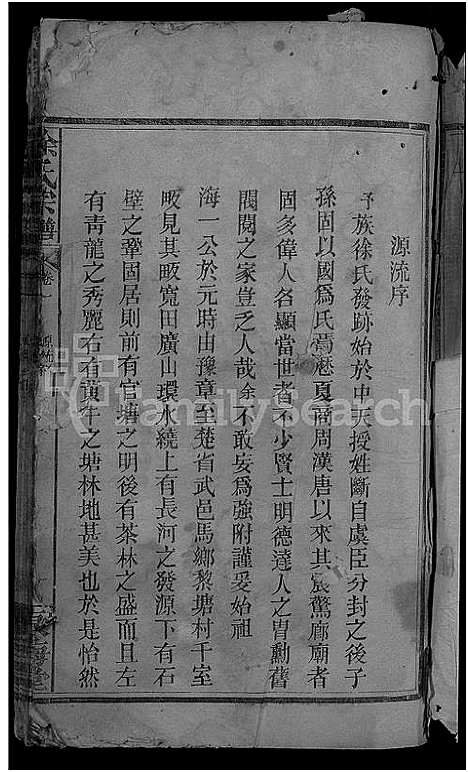 源流序
予族徐氏發跡始於中天授姓斷自虞臣分封之後子
孫固以國爲氏焉歷夏商周漢唐以來其宸驚廊廟者
固多偉人名顯當世者不少賢士明德達人之胄勳舊
閥閱之家豈乏人哉余不敢妄爲強附謹妥始祖
海一公於元時由豫章至楚省武邑馬鄉黎塘村千室
畈見其畈寬田廣山環水繞上有長河之發源下有石
壁之鞏固居則前有官塘之明後有茶林之盛而且左
有靑龍之秀麗右有黃牛之塘林地甚美也於是怡然
徐氏宗譜
卷
FamilySearch